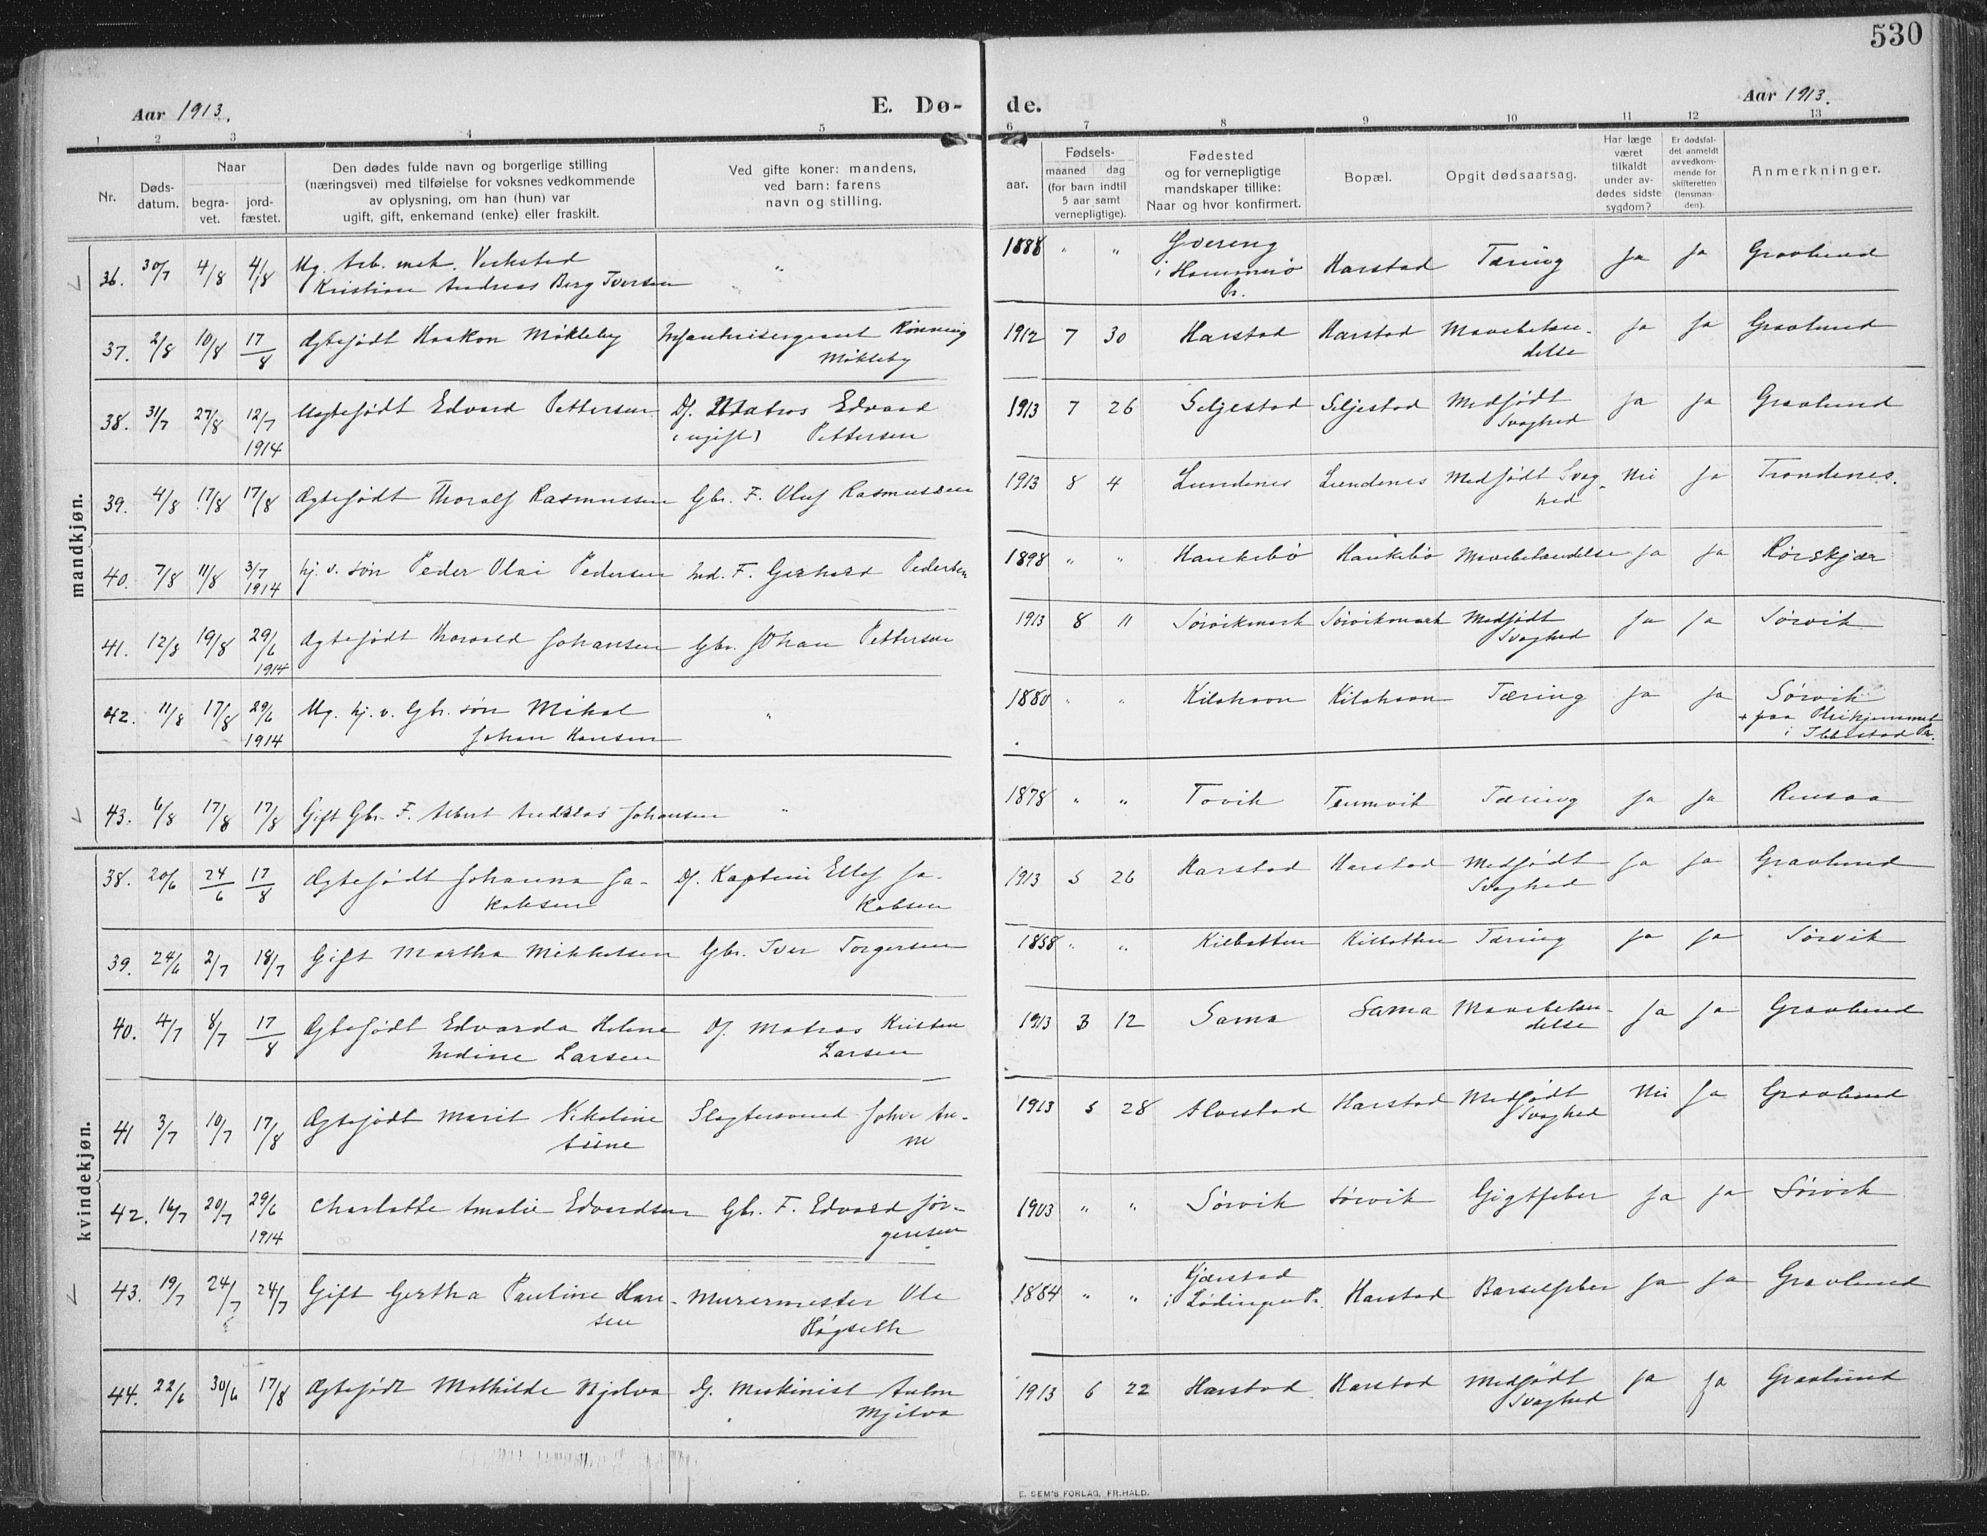 530
Aar 1913.
E. Dø- de.
Aar 1913.
1 2 3 4 5 6 7 8 9 10 11 12 13
Nr.
Døds-
datum.
Naar
begra-
vet.
jord-
fæstet.
Den dødes fulde navn og borgerlige stilling
(næringsvei) med tilføielse for voksnes vedkommende
av oplysning, om han (hun) var
ugift, gift, enkemand (enke) eller fraskilt.
Ved gifte koner: mandens,
ved barn: farens
navn og stilling.
Fødsels-
aar.
maaned dag
(for barn indtil
5 aar samt
vernepligtige).
Fødested
og for vernepligtige
mandskaper tillike:
Naar og hvor konfirmert.
Bopæl.
Opgit dødsaarsag.
Har læge
været
tilkaldt
under av-
dødes sidste
sygdom?
Er dødsfal-
det anmeldt
av vedkom-
mende for
skifteretten
(lensman-
den).
Anmerkninger.
mandkjøn.
36. 30/7 4/8 4/8 Ug. Arb. mek. Verksted
Kristian Andreas Berg Iversen " 1888 " "
i Hammerø
Pr. Harstad Tæring Ja Ja Gravlund
37. 2/8 10/8 17/8 Ægtefødt Haakon Møkleby Infanterisergeant Rønning
Møkleby 1912 7 30 Harstad Harstad Mavebetæn-
delse Ja Ja Gravlund
38. 31/7 27/8 12/7
1914 Uægtefødt Edvard Pettersen Df. Matros Edvard
(ugift) Pettersen 1913 7 26 Seljestad Seljestad Medfødt
Svaghed Ja Ja Gravlund
39. 4/8 17/8 17/8 Ægtefødt Thoralf Rasmussen Gbr. F. Oluf Rasmussen 1913 8 4 Lundenes Lundenes Medfødt Svag-
hed Nei Ja Trondenes.
40. 7/8 11/8 3/7
1914 hj. v. søn Peder Olai Pedersen Ind. F. Gerhard Pedersen 1898 " " Haukebø Haukebø Mavebetændelse Ja Ja Rørskjær
41. 12/8 19/8 29/6
1914 Ægtefødt Thorvald Johansen Gbr. Johan Pettersen 1913 8 11 Sørvikmark Sørvikmark Medfødt
Svaghed Ja Ja Sørvik
42. 11/8 17/8 29/6
1914 Ug. hj. v. Gbr. søn Mikal
Johan Hansen " 1880 " " Kilahavn Kilahavn Tæring Ja Ja Sørvik
+ paa Pleiehjemmet
i Ibbestad Pr.
43. 6/8 17/8 17/8 Gift Gbr. F. Albert Andreas Johansen " 1878 " " Tovik Tennvik Tæring Ja Ja Rensaa
kvindekjøn.
38. 20/6 24/6 17/8 Ægtefødt Johanna Ja-
kobsen Df. Kaptein Ellef Ja-
kobsen 1913 5 26 Harstad Harstad Medfødt
Svaghed Ja Ja Gravlund
39. 24/6 2/7 18/7 Gift Martha Mikkelsen Gbr. Iver Torgersen 1858 " " Kilbotten Kilbotten Tæring Ja Ja Sørvik
40. 4/7 8/7 17/8 Ægtefødt Edvarda Helene
Indine Larsen Df. Matros Kristen
Larsen 1913 3 12 Sama Sama Mavebetæn-
delse Ja Ja Gravlund
41 3/7 10/7 17/8 Ægtefødt Marit Nikoline
Slagtersvend 1913 5 28 Harstad Medfødt
Svaghed Nei Ja Gravlund
42. 16/7 20/7 29/6
1914 Charlotte Amalie Edvardsen Gbr. F. Edvard Jør-
gensen 1903 " " Sørvik Sørvik Gigtfeber Ja Ja Sørvik
43. 19/7 24/7 24/7 Gift Gertha Pauline Han-
sen Murermester Ole
Høgseth 1884 " " Kjærstad
i Lødingen Pr. Harstad Barselfeber Ja Ja Gravlund
44. 22/6 30/6 17/8 Ægtefødt Mathilde Mjelva Df. Maskinist Anton
Mjelva 1913 6 22 Harstad Harstad Medfødt
Svaghed Ja Ja Gravlund
E. SEM'S FORLAG, FR.HALD.